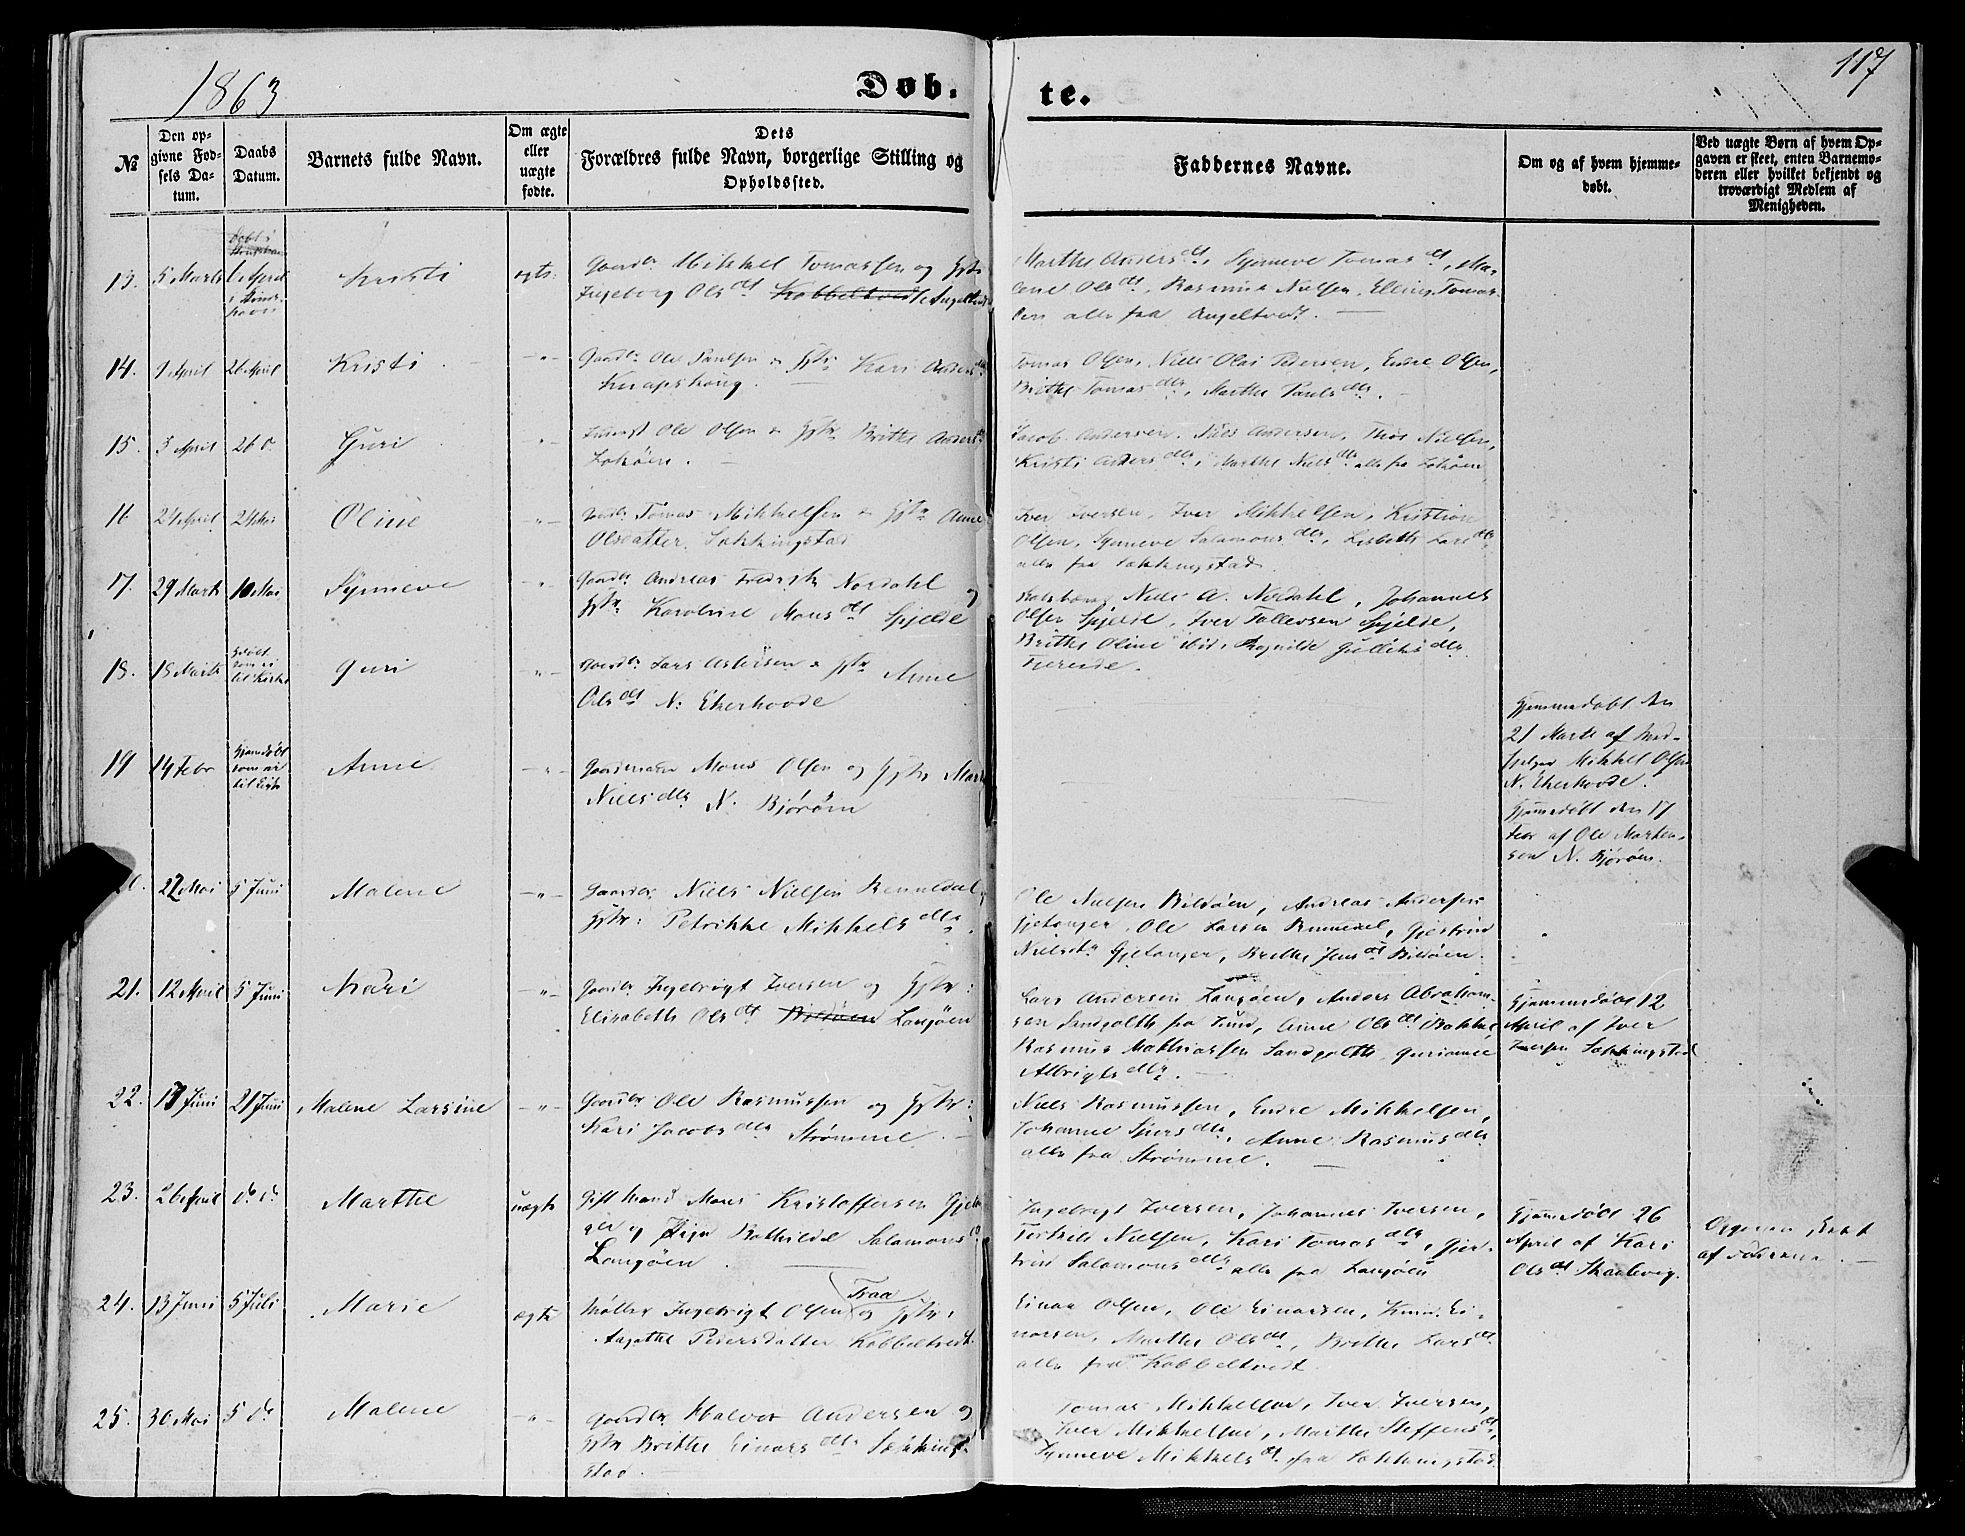 1863
Døb-
te.
117
№
Den op-
givne Fød-
sels Da-
tum.
Daabs
Datum.
Barnets fulde Navn.
Om ægte
eller
uægte
fødte.
Dets
Forældres fulde Navn, borgerlige Stilling og
Opholdssted.
Faddernes Navne.
Om og af hvem hjemme-
døbt.
Ved uægte Børn af hvem Op-
gaven er skeet, enten Barnemo-
deren eller hvilket bekjendt og
troværdigt Medlem af
Menigheden.
13. 5 Marts 6 April Kristi ægte Gaardbr. Mikkel Tomassen og Hstr
Ingeborg Olsdt Kobbeltvedt Angeltvedt
Marthe Andersdt, Synneve Tomasdt, Ma-
lene Olsdt, Rasmus Nielsen, Elling Tomas-
sen alle fra Angeltvedt.
14. 1 April 26 April Kristi -"- Gaardbr. Ole Paulsen & Hstr Kari Andersdtr
Knapskoug.
Tomas Olsen, Niels Olai Pedersen, Endre Olsen,
Brithe Tomasdtr, Marthe Paulsdtr.
15. 3 April 26 d. Guri " Ole Olsen & Hstr Brithe Andersdtr
Lokøen.
Jacob Andersen, Niels Andersen, Thos Nielsen,
Kristi Andersdtr, Marthe Nielsdtr alle fra Lokøen
16 24 April 24 Mai Oline -"- Gaardbr. Tomas Mikkelsen & Hstr Anne
Olsdatter Sækkingstad
Iver Iversen, Iver Mikkelsen, Kristian
Olsen, Synneve Salamonsdtr, Lisbeth Larsdtr
alle fra Sækkingstad.
17. 29 Marts 10 Mai Synneve " Gaardbr. Andreas Fredrik Nordahl og
Hstr Karoline Monsdt Spjelde
Niels A. Nordahl, Johannes
Olsen Spjelde, Iver Tollevsen Spjelde,
Brithe Oline ibid, Ragnilde Gulliksdtr
18. 15 Marts Guri -"- Gaardbr. Lars Andersen & Hstr Anne
Olsdt N. Ekerhovde
Hjemmedøbt den
21 Marts af
Mikkel Olsen
N. Ekerhovde.
19 14 Febr Anne. -"- Gaardmand Mons Olsen og Hstr Mari
Nielsdtr N. Bjørøen
Hjemmedøbt den 17
Febr af Ole Marken-
sen N. Bjørøen.
20. 22 Mai 5 Juni Malene -"- Gaardbr. Niels Nielsen Rennedal
Hstr: Petrikke Mikkelsdtr.
Ole Nielsen Bildøen, Andreas Andersen
Gjetanger, Ole Larsen Rennedal, Gjertrud
Nielsdtr Gjetanger, Brithe Jensdt Bildøen.
21. 12 April 5 Juni Kari -"- Gaardbr. Ingebrigt Iversen og Hstr:
Elisabeth Olsdt Bildøen Langøen
Lars Andersen Langøen, Anders Abraham-
sen Landgolth fra Sund, Anne Olsdt Bakke,
Rasmus Mathiassen Sandgolth, Guriane
Albrigtsdtr.
Hjemmedøbt 12
April af Iver
Iversen Sækkingstad
22. 17 Juni 21 Juni Malene Larsine -"- Gaardbr Ole Rasmussen og Hstr:
Kari Jacobsdtr Strømme.
Niels Rasmussen, Endre Mikkelsen,
Johanne Sjursdtr, Anne Rasmusdtr
alle fra Strømme.
23. 26 April do do Marthe uægte Gift Mand Mons Kristoffersen Gjetan-
ger og Pige Bothilde Salamonsdt
Langøen.
Ingebrigt Iversen, Johannes Iversen,
Torkild Nielsen, Kari Tomasdtr, Gjer-
trud Salamonsdtr alle fra Langøen
Hjemmedøbt 26
April af Kari
Olsdt Skaalevig.
Opgaven skeet
af Faderen.
24. 13 Juni 5 Juli Marie ægte Møller Ingebrigt Olsen Traa og Hstr:
Aagothe Pedersdatter Kobbeltvedt.
Einar Olsen, Ole Einarsen, Knud Ei-
narsen, Marthe Olsdt, Brithe Larsdt
alle fra Kobbeltvedt.
25. 30 Mai 5 do Malene -"- Gaardbr Halvor Andersen og
Hstr Brithe Einarsdtr Sækking-
stad.
Tomas Mikkelsen, Iver Iversen,
Iver Mikkelsen, Marthe Steffensdt,
Synneve Mikkelsdt fra Sækkingstad.